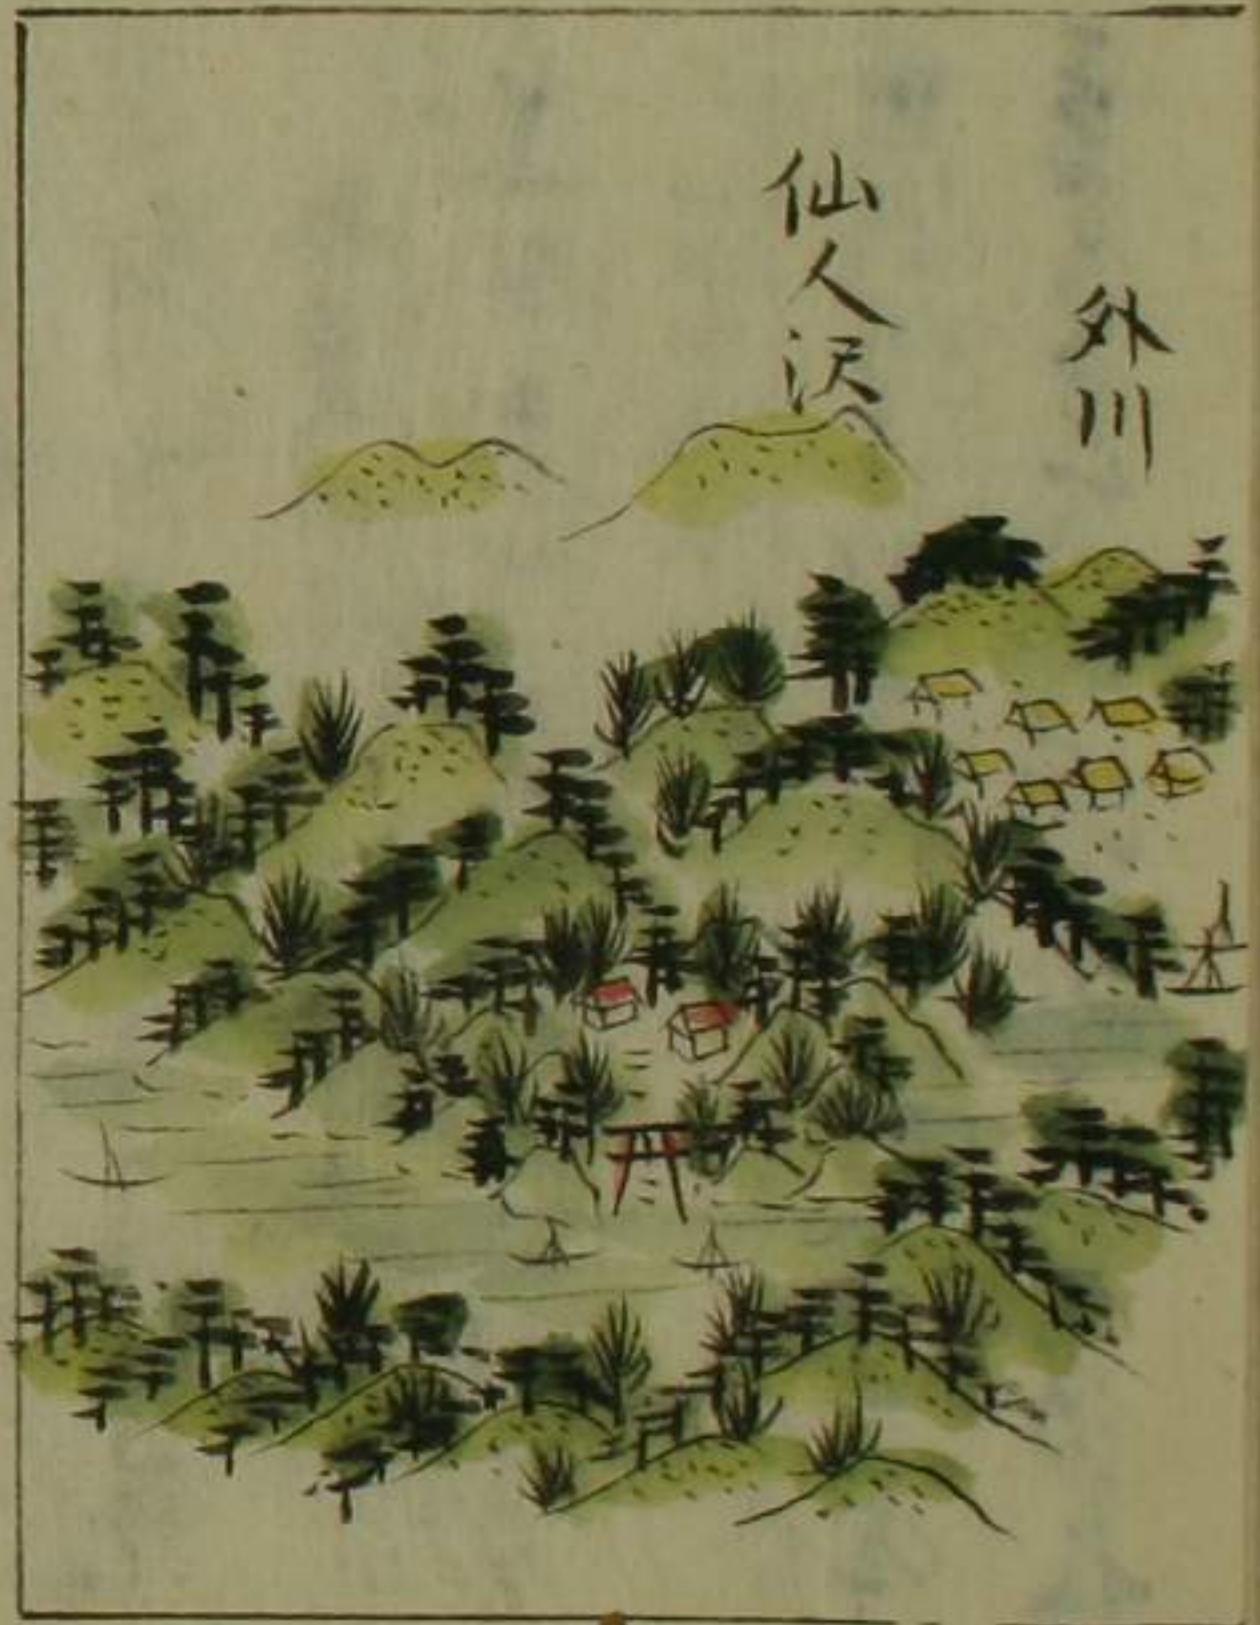 外川
仙人沢